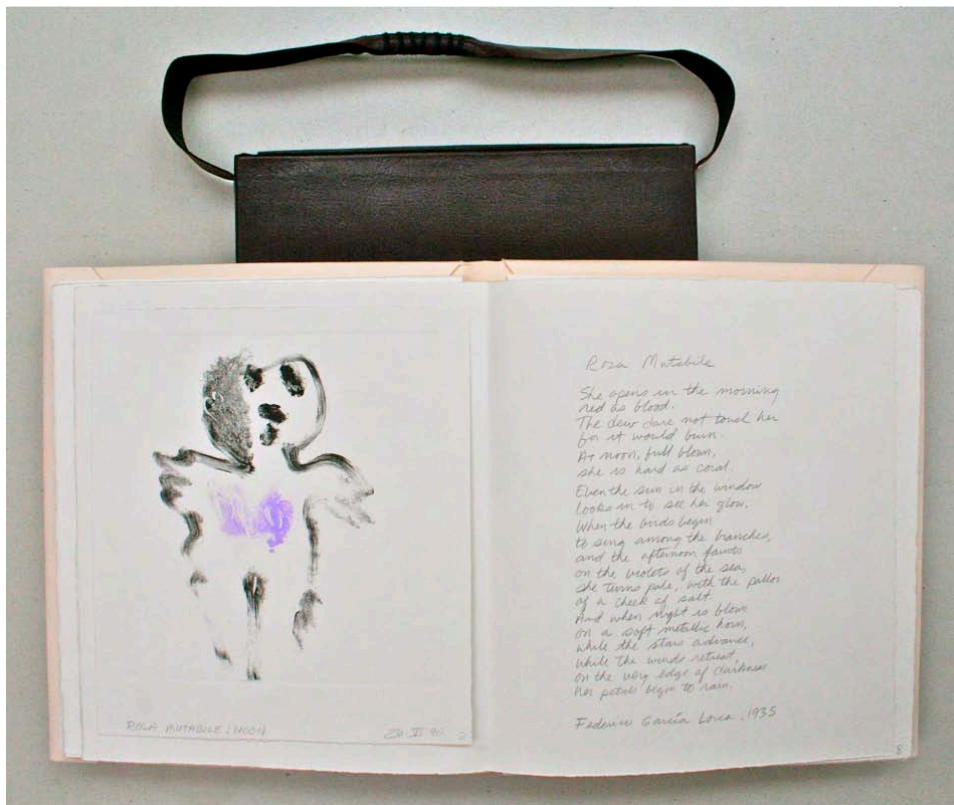 ROSA MUTABILE : MOON
2
Rosa Mutabile
She opens in the morning
red as blood.
The dew dare not touch her
for it would burn.
At noon, full blown,
she is hard as coral.
Even the sun in the window
looks in to see her glow.
When the birds begin
to sing among the branches,
and the afternoon faints
on the violets of the sea,
she turns pale, with the pallor
of a cheek of salt.
And when night is blown
on a soft metallic horn,
while the stars advance,
while the winds retreat,
on the very edge of darkness
her petals begin to rain.
Federico García Lorca, 1935
8